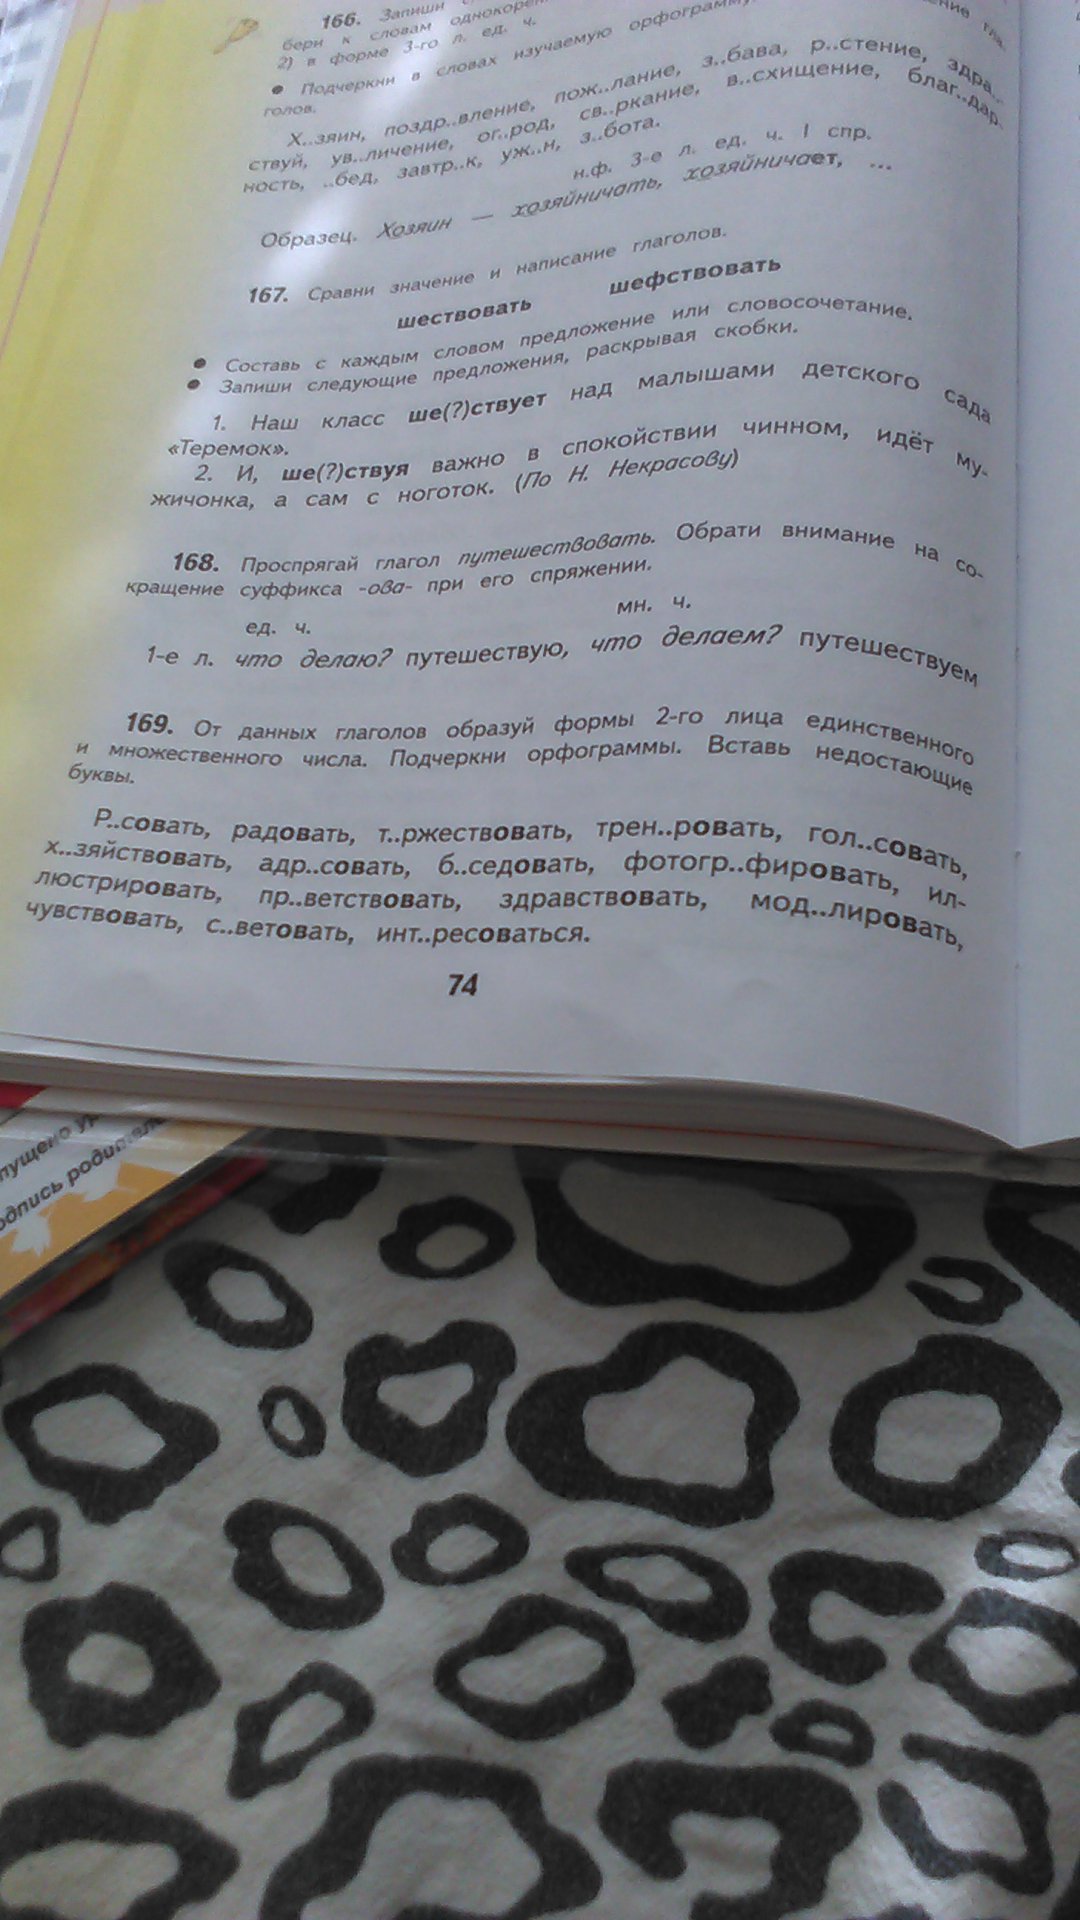 166. Запиши
бери к словам однокорен
2) в форме 3-го л. ед. ч.
● Подчеркни в словах изучаемую орфограмму.
голов.
Х..зяин, поздр..вление, пож..лание, з..бава, р..стение, здра..-
ствуй, ув..личение, ог..род, св..ркание, в..схищение, благ..дар-
ность, ..бед, завтр..к, уж..н, з..бота.
н.ф. 3-е л. ед. ч. I спр.
Образец. Хозяин — хозяйничать, хозяйничает, ...
167. Сравни значение и написание глаголов.
шествовать шефствовать
● Составь с каждым словом предложение или словосочетание.
● Запиши следующие предложения, раскрывая скобки.
1. Наш класс ше(?)ствует над малышами детского сада
«Теремок».
2. И, ше(?)ствуя важно в спокойствии чинном, идёт му-
жичонка, а сам с ноготок. (По Н. Некрасову)
168. Проспрягай глагол путешествовать. Обрати внимание на со-
кращение суффикса -ова- при его спряжении.
ед. ч. мн. ч.
1-е л. что делаю? путешествую, что делаем? путешествуем
169. От данных глаголов образуй формы 2-го лица единственного
и множественного числа. Подчеркни орфограммы. Вставь недостающие
буквы.
Р..совать, радовать, т..ржествовать, трен..ровать, гол..совать,
х..зяйствовать, адр..совать, б..седовать, фотогр..фировать, ил-
люстрировать, пр..ветствовать, здравствовать, мод..лировать,
чувствовать, с..ветовать, инт..ресоваться.
74